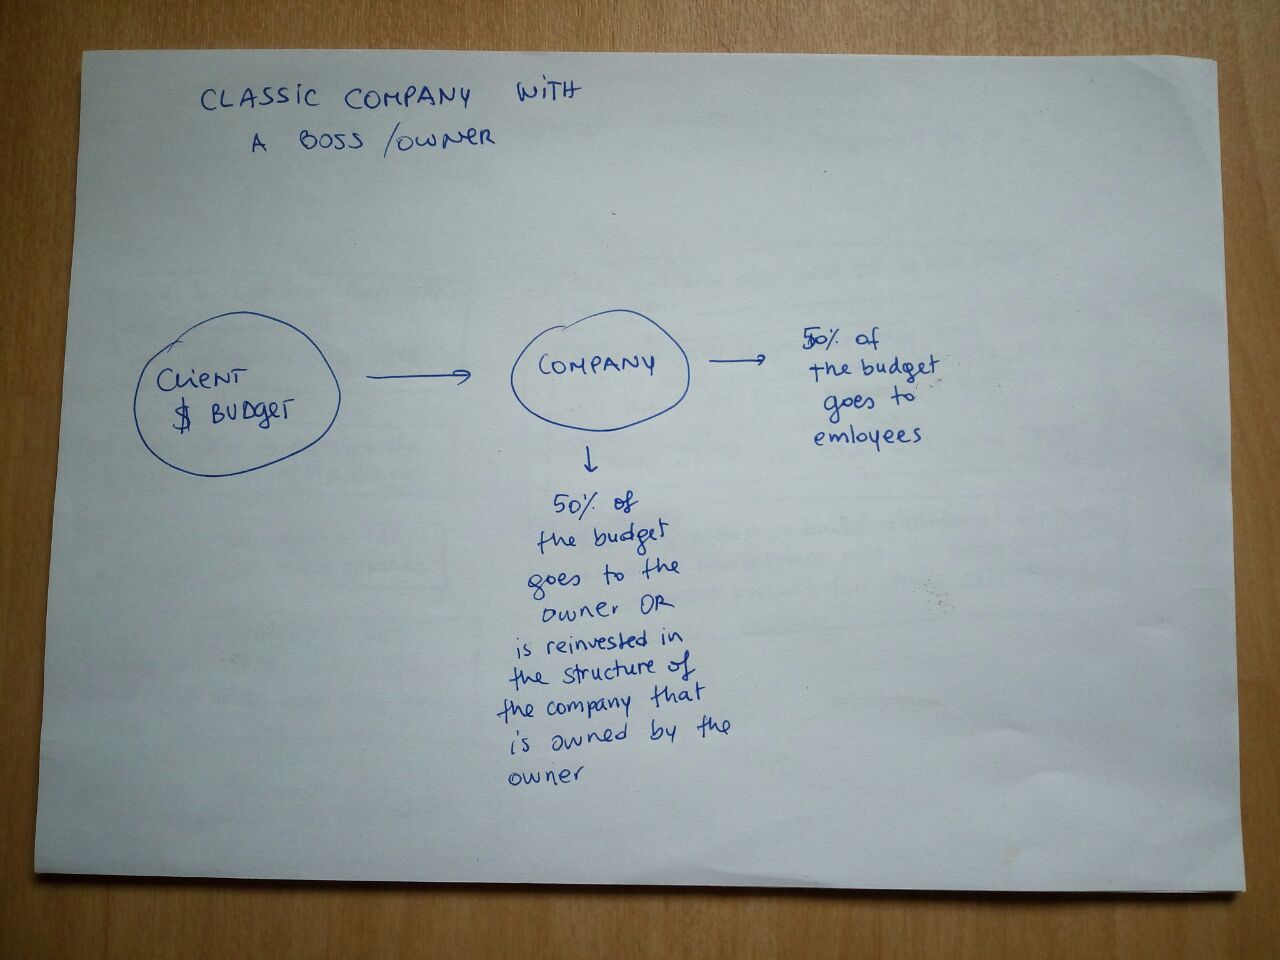 CLASSiC COMPANY WiTH
A BOSS /OWNER
CLiENT
$ BUDgET
COMPANY
50% of
the budget
goes to
emloyees
50% of
the budget
goes to the
owner OR
is reinvested in
the structure of
the company that
is owned by the
owner